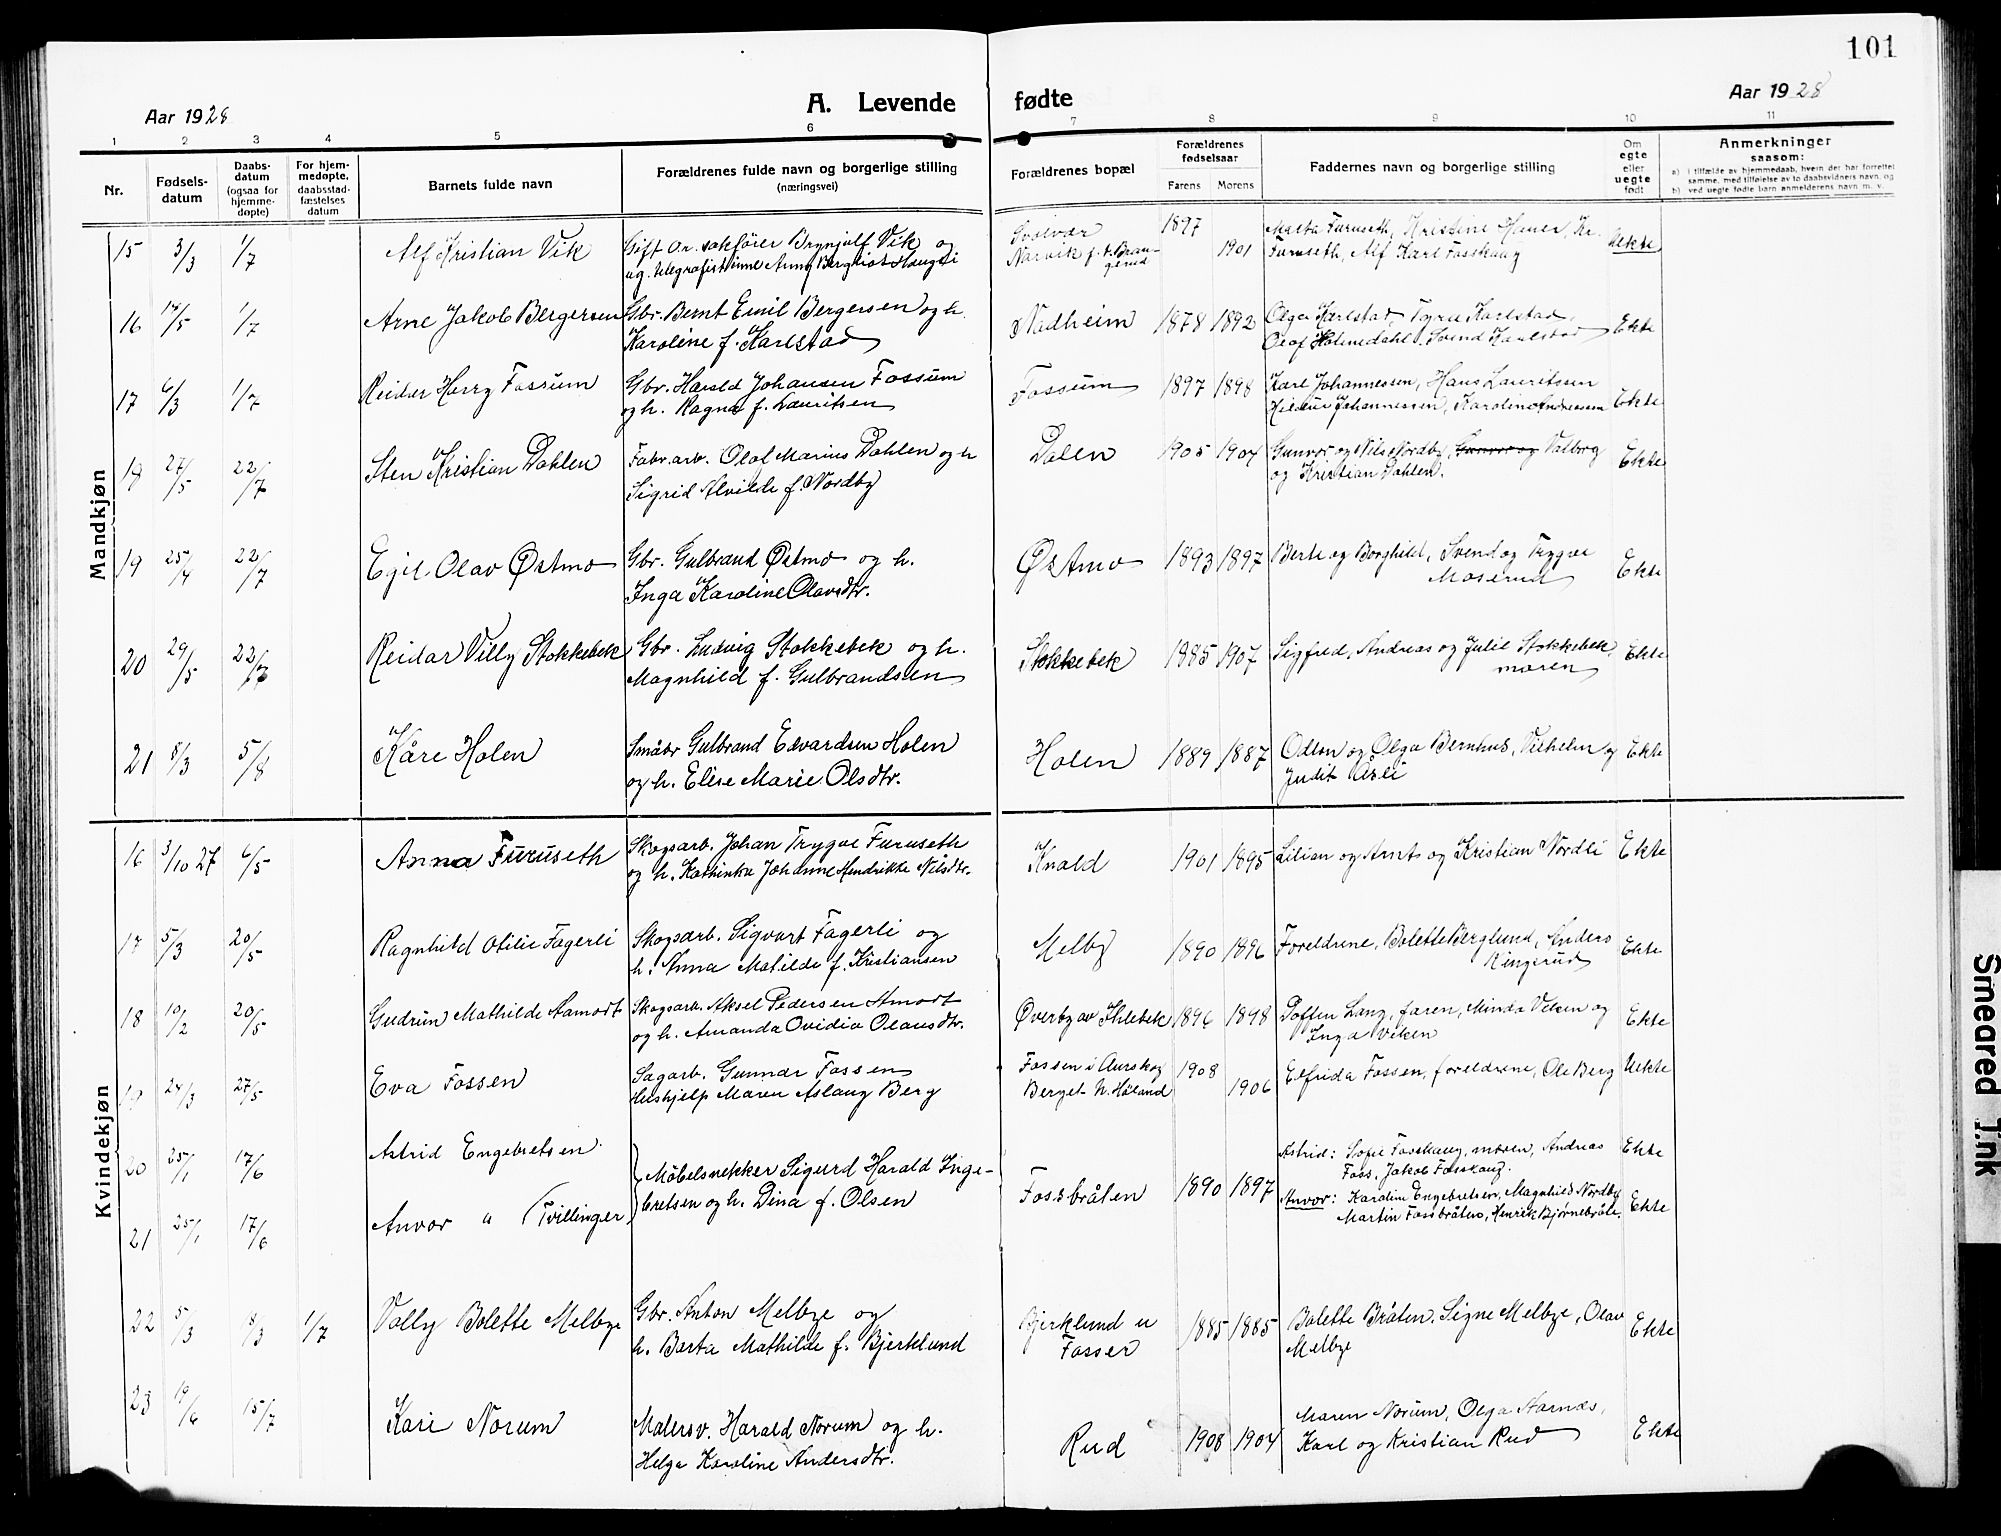 101
Aar 1928 A. Levende fødte Aar 1928
1 2 3 4 5 6 7 8 9 10 11
Nr. Fødsels-datum Daabs-datum (ogsaa for hjemme-døpte) For hjem-medøpte, daabsstad-fæstelses datum Barnets fulde navn Forældrenes fulde navn og borgerlige stilling (næringsvei) Forældrenes bopæl Forældrenes fødselsaar Farens Morens Faddernes navn og borgerlige stilling Om egte eller uegte født Anmerkninger saasom:
a) i tilfælde av hjemmedaab, hvem der har forrettet samme, med tilføielse av to daabsvidners navn, og
b) ved uegte fødte barn anmelderens navn m. v.
Mandkjøn
15 3/3 1/7 Alf Kristian Vik Gift or. sakfører Brynjulf Vik og Svolvær 1897 Marta Furuseth, Kristine Huner, Kr. Uekte
ug. telegrafistinne Anny Bergliot Haugli Narvik f. t. Bran-gerud 1901 Furuseth, Alf Karl Fosskaug
16 14/5 1/7 Arne Jakob Bergersen Gbr. Bernt Emil Bergersen og h. Nadheim 1878 1892 Olga Karlstad, Tyra Karlstad, Ekte
Karoline f. Karlstad Olaf Holmedahl, Svend Karlstad
17 6/3 1/7 Reidar Harry Fossum Gbr. Harald Johansen Fossum Fossum 1897 1898 Karl Johannessen, Hans Lauritsen Ekte
og h. Ragna f. Lauritsen Hildur Johannessen, Karoline Andreassen
18 27/5 22/7 Sten Kristian Dahlen Fabr.arb. Olaf Marius Dahlen og h Dalen 1905 1904 Gunvor og Nils Nordby, Gunvor og Valborg Ekte
Sigrid Alvilde f. Nordby og Kristian Dahlen.
19 25/4 22/7 Egil Olav Østmo Gbr. Gulbrand Østmo og h. Østmo 1893 1897 Berte og Borghild, Svend og Trygve Ekte
Inga Karoline Olavsdtr. Moserud
20 29/5 22/7 Reidar Villy Stokkebek Gbr. Ludvig Stokkebek og h. Stokkebek 1885 1907 Sigfred, Andreas og Julie Stokkebek, Ekte
Magnhild f. Gulbrandsen moren
21 8/3 5/8 Kåre Holen Småbr Gulbrand Edvardsen Holen Holen 1889 1887 Odlon og Olga Bernhus, Vilhelm og Ekte
og h. Elise Marie Olsdtr. Judit Åsli
Kvindekjøn
16 3/10 27 6/5 Anna Furuseth Skogsarb. Johan Trygve Furuseth Knold 1901 1895 Lilian og Arnts og Kristian Nordli Ekte
og h. Kathinka Johanne Hendrikke Nilsdtr.
17 5/3 20/5 Ragnhild Otilie Fagerli Skogsarb. Sigvart Fagerli og Melby 1890 1896 Foreldrene, Bolette Berglund, Anders Ekte
h. Anna Matilde f. Kristiansen Ringerud
18 10/2 20/5 Gudrun Mathilde Aamodt Skogsarb. Aksel Pedersen Amodt Øverby av Ihlebek 1896 1898 Doften Lang, faren, Minda Viken og Ekte
og h. Amanda Ovidia Olausdtr. Inga Viken
19 24/3 27/5 Eva Fossen Sagarb. Gunnar Fossen Fossen i Aurskog 1908 Elfrida Fossen, foreldrene, Ole Berg Uekte
Hushjelp Maren Aslaug Berg Berget N. Høland 1906
20 25/1 17/6 Astrid Engebretsen Møbelsnekker Sigurd Harald Inge- Fossbråten 1890 1897 Astrid: Sofie Fosskaug, moren, Andreas Ekte
Foss, Jakob Fosskaug.
21 25/1 17/6 Anvor " (Tvillinger bretsen og h. Dina f. Olsen Anvor: Karoline Engebretsen, Magnhild Nordby Ekte
Martin Fossbråten, Henrik Bjørnebråte.
22 5/3 8/3 1/7 Volly Bolette Melbye Gbr. Anton Melbye og Bjerklund u 1885 1885 Bolette Bråten, Signe Melbye, Olav Ekte
h. Berta Mathilde f. Bjerklund Fosser Melbye
23 19/6 15/7 Kari Norum Malersv. Harald Norum og h. Rud 1908 1904 Maren Norum, Olga Aarnæs, Ekte
Helga Karoline Andersdtr. Karl og Kristian Rud
Smeared Ink